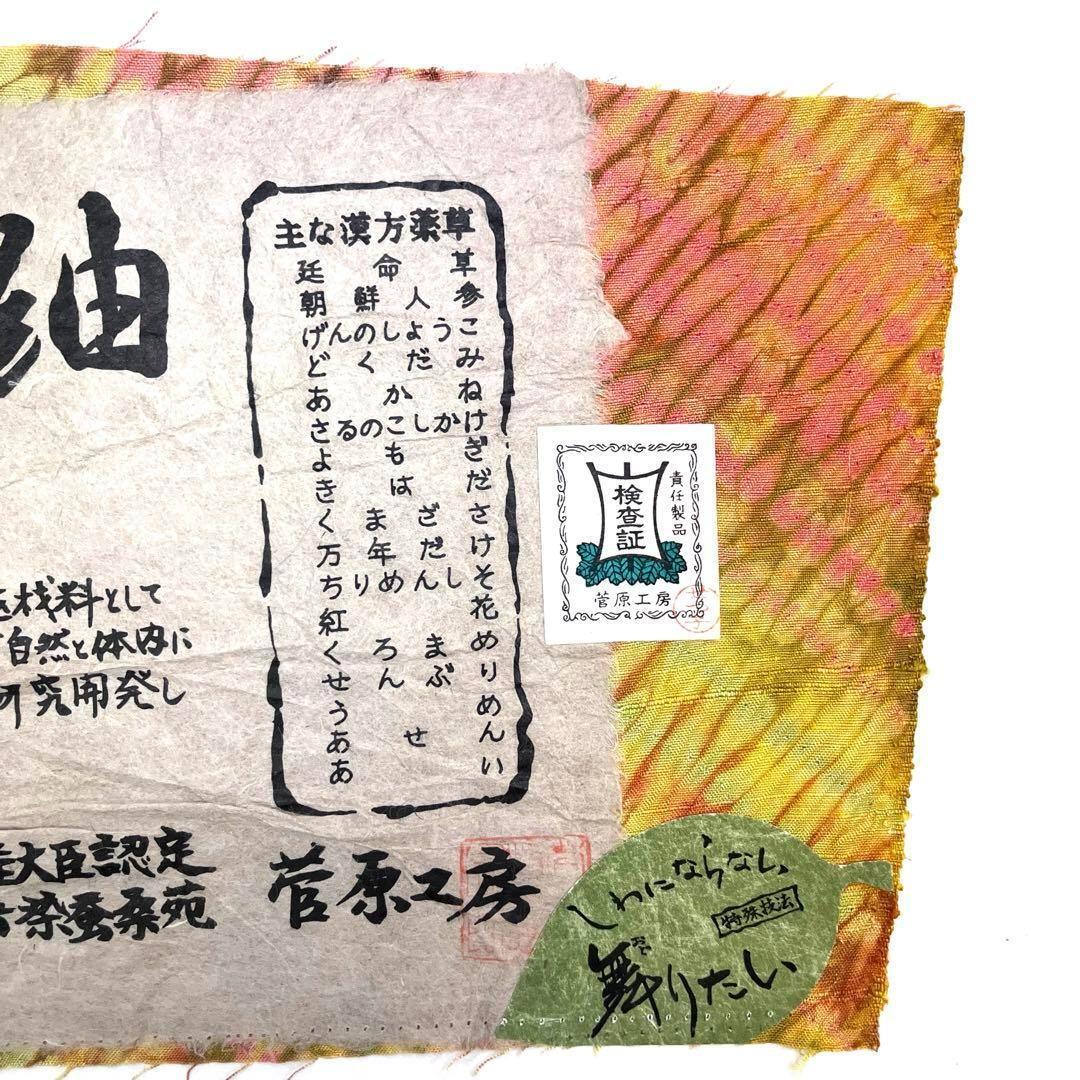 紬
主な漢方薬草
延命草
朝鮮人参
げんのしょうこ
どくだみ
あかね
さるのこしかけ
よもぎ
きはだ
くまざさ
万年だけ
ちりめんしそ
紅花
くろまめ
せんぶり
うめ
あせん
あい
材料として
自然と体内に
研究開発し
大臣認定
染蚕桑苑
菅原工房
責任製品
検査証
菅原工房
しわにならない
特殊技法
舞りたい